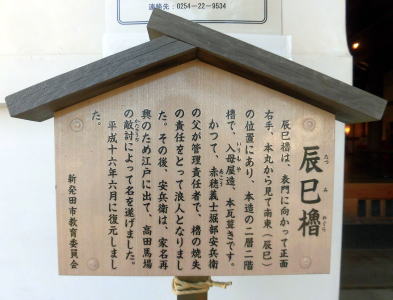 連絡先：0254－22－9534
辰巳櫓
たつ み やぐら
辰巳櫓は、表門に向かって正面
右手、本丸から見て南東（辰巳）
の位置にあり、本造の二層二階
櫓で、入母屋造、本瓦葺きです。
かつて、赤穂義士堀部安兵衛
の父が管理責任者で、櫓の焼失
の責任をとって浪人となりまし
た。その後、安兵衛は、家名再
興のため江戸に出て、高田馬場
の敵討によって名を遂げました。
平成十六年六月に復元しまし
た。
新発田市教育委員会